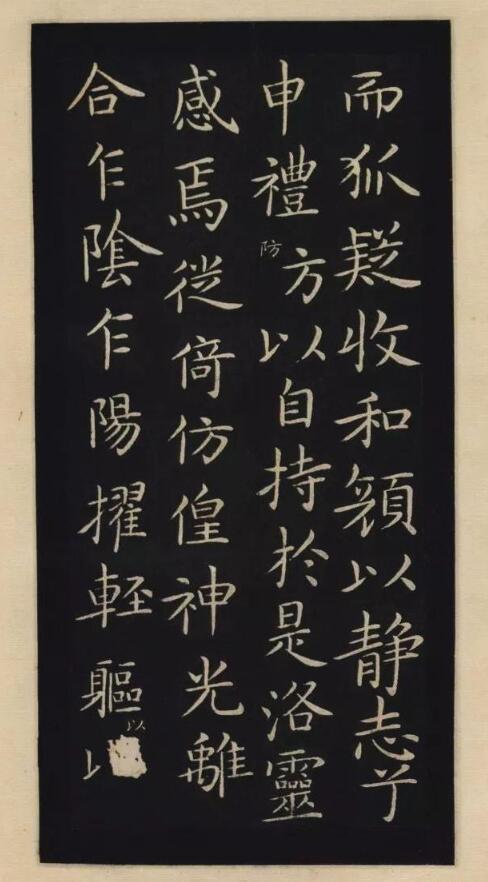 而狐疑收和顏以静志兮
申禮方防以自持於是洛靈
感焉徙倚仿偟神光離
合乍陰乍陽擢輕軀以